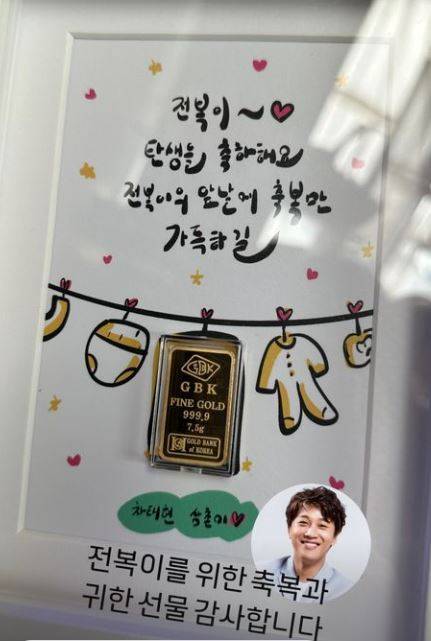 전복이~♥
탄생을 축하해요
전복이의 앞날에 축복만
가득하길
GBK
GBK
FINE GOLD
999.9
7.5g
GOLD BANK
of KOREA
차태현 삼촌이♥
전복이를 위한 축복과
귀한 선물 감사합니다